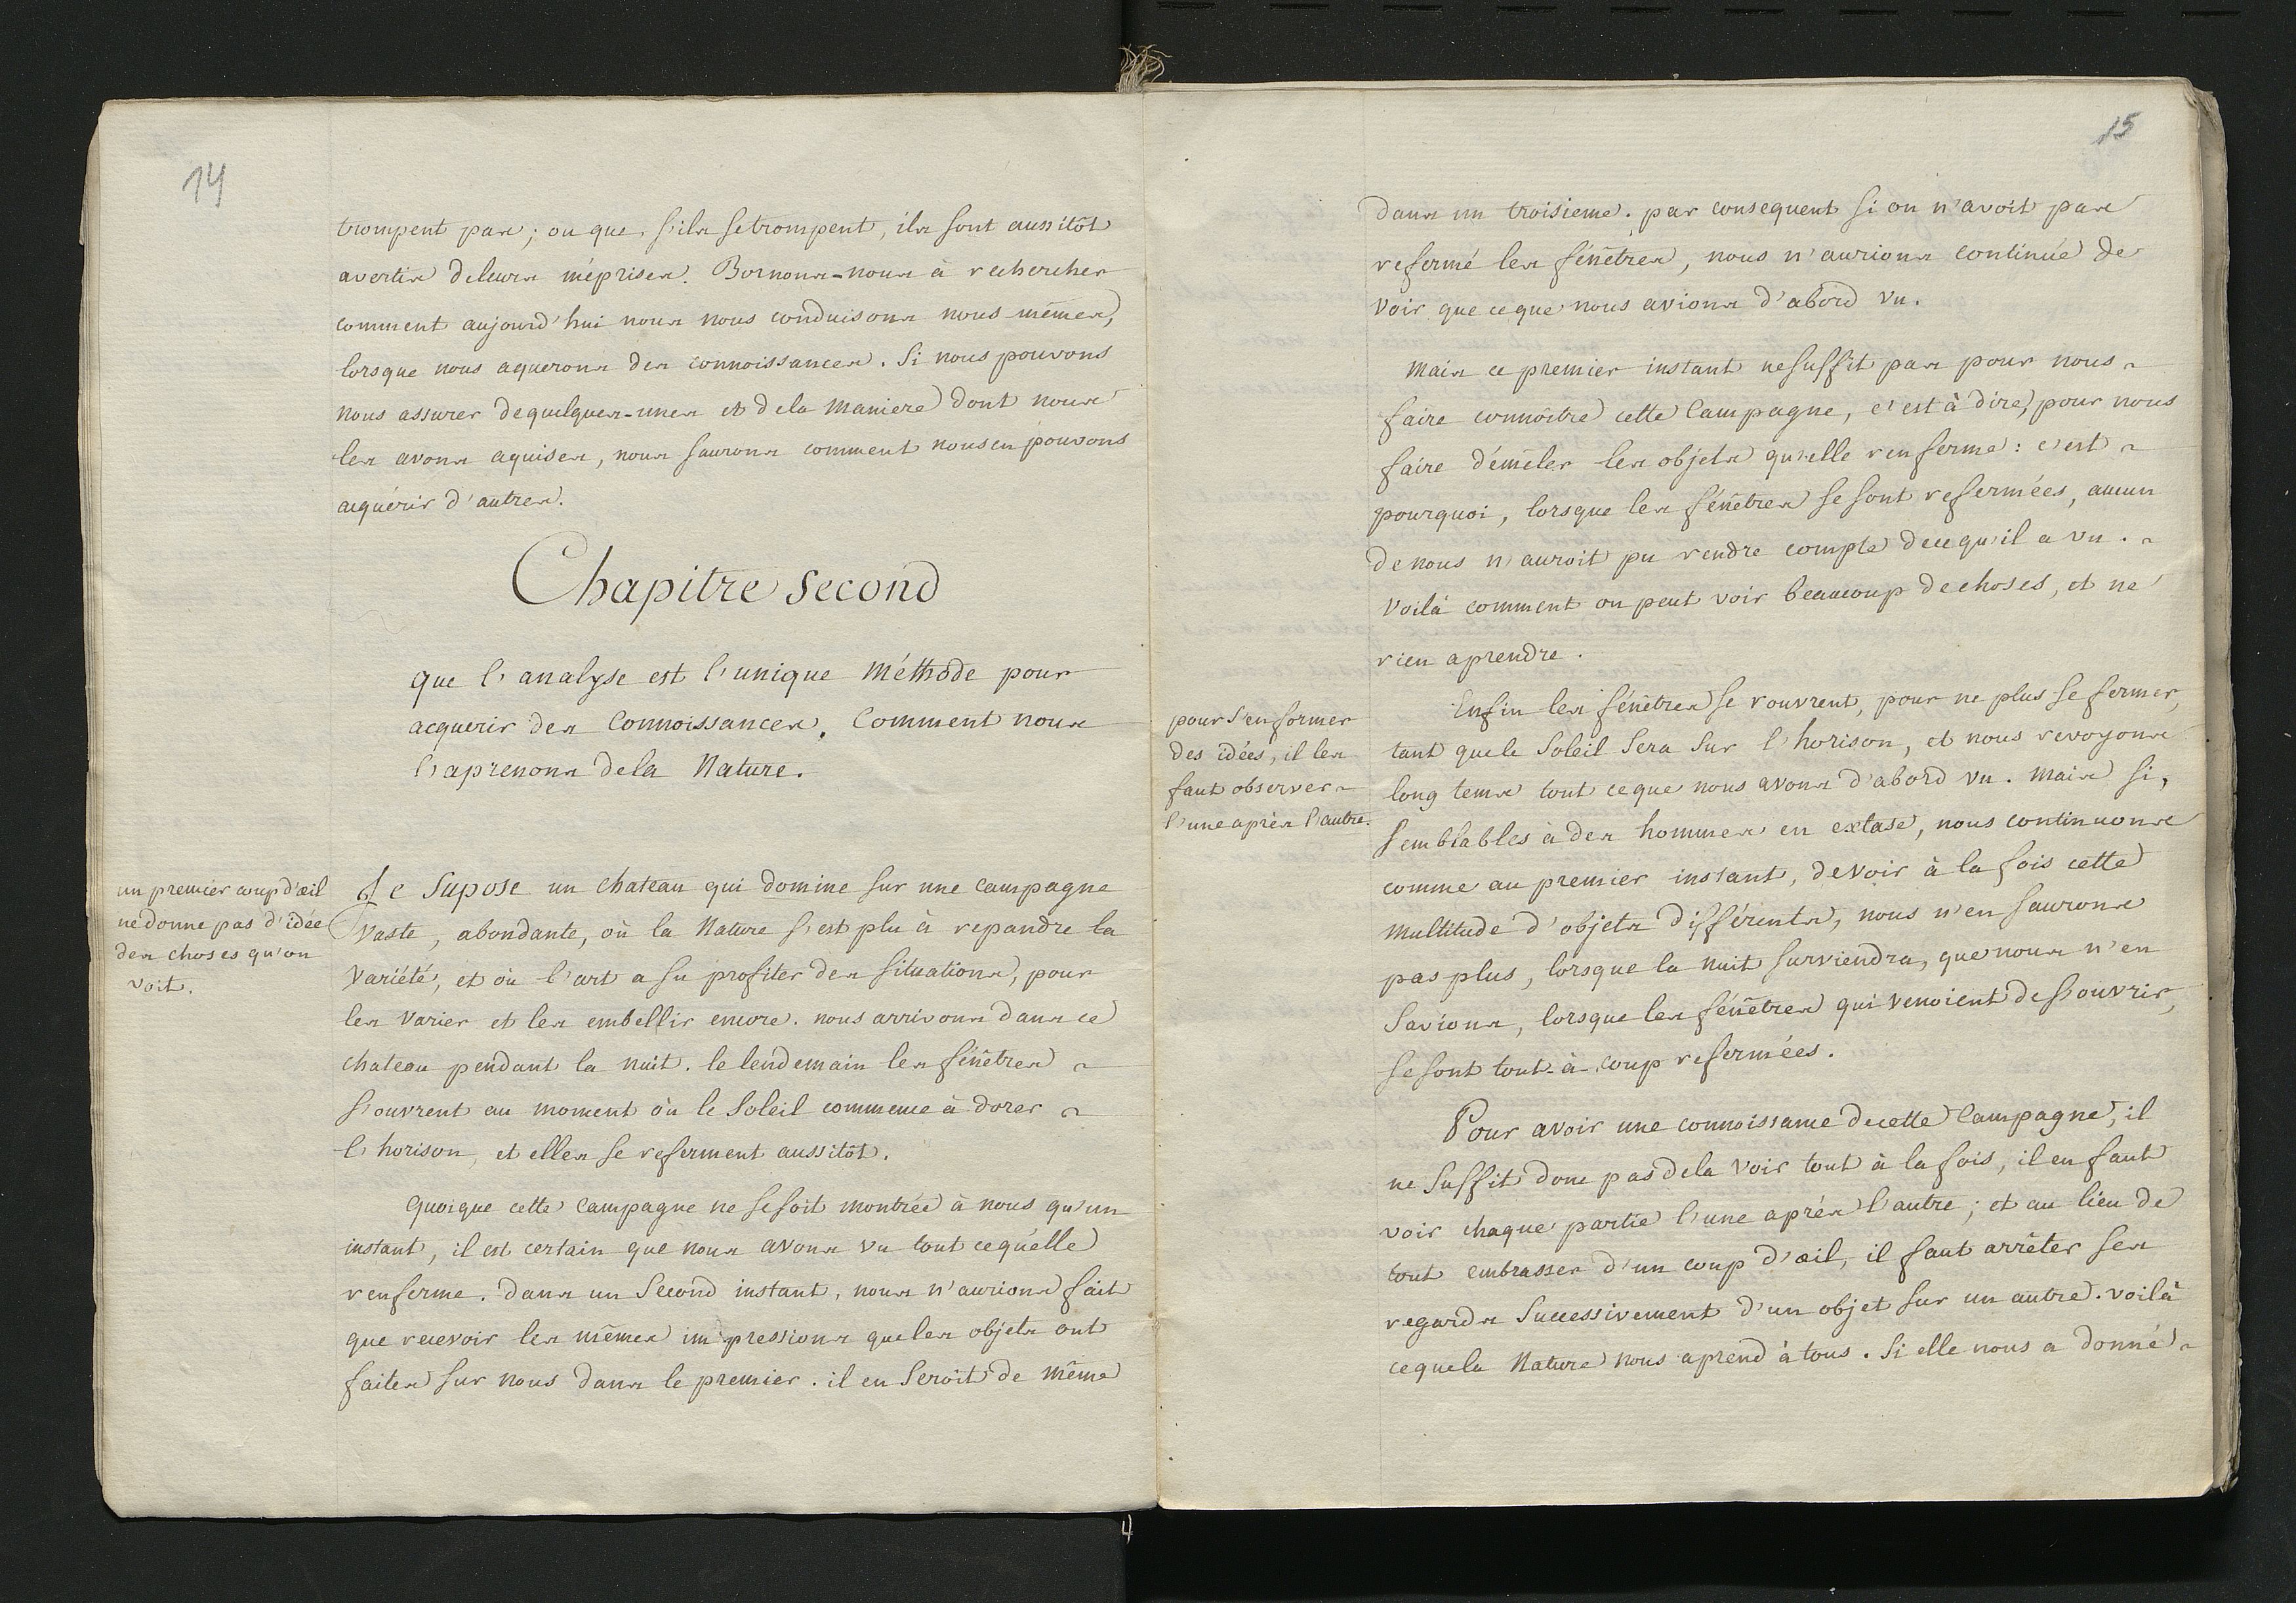 14
trompent pas; ou que s'ils se trompent, ils sont aussitôt
avertis de leurs méprises. Bornons-nous à rechercher
comment aujourd'hui nous nous conduisons nous mêmes,
lorsque nous aquerons des connoissances. Si nous pouvons
nous assurer de quelques-unes et de la maniere dont nous
les avons aquises, nous saurons comment nous en pouvons
acquérir d'autres.
Chapitre second
que l'analyse est l'unique méthode pour
acquerir des connoissances. Comment nous
l'aprenons de la Nature.
un premier coup d'œil
ne donne pas d'idée
des choses qu'on
voit.
Je supose un chateau qui domine sur une campagne
vaste, abondante, où la Nature s'est plu à repandre la
variété, et où l'art a su profiter des situations, pour
les varier et les embellir encore. nous arrivons dans ce
chateau pendant la nuit. le lendemain les fenêtres
s'ouvrent au moment où le Soleil commence à dorer
l'horison, et elles se referment aussitôt.
quoique cette campagne ne se soit montrée à nous qu'un
instant, il est certain que nous avons vu tout ce qu'elle
renferme. dans un second instant, nous n'aurions fait
que recevoir les mêmes impressions que les objets ont
faites sur nous dans le premier. il en seroit de même
15
dans un troisieme. par consequent si on n'avoit pas
refermé les fenêtres, nous n'aurions continué de
voir que ce que nous avions d'abord vu.
mais ce premier instant ne suffit pas pour nous
faire connoître cette campagne, c'est à dire, pour nous
faire démêler les objets qu'elle renferme: c'est
pourquoi, lorsque les fénêtres se sont refermées, aucun
de nous n'auroit pu rendre compte de ce qu'il a vu.
Voilà comment on peut voir beaucoup de choses, et ne
rien aprendre.
pour s'en former
des idées, il les
faut observer
l'une après l'autre.
Enfin les fénêtres se rouvrent, pour ne plus se fermer,
tant que le Soleil sera sur l'horison, et nous revoyons
long tems tout ce que nous avons d'abord vu. mais si,
semblables à des hommes en extase, nous continuons
comme au premier instant, de voir à la fois cette
multitude d'objets différents, nous n'en saurons
pas plus, lorsque la nuit surviendra, que nous n'en
savions, lorsque les fénêtres qui venoient de s'ouvrir,
se sont tout-à-coup refermées.
Pour avoir une connoissance de cette campagne, il
ne suffit donc pas de la voir tout à la fois, il en faut
voir chaque partie l'une après l'autre; et au lieu de
tout embrasser d'un coup d'œil, il faut arrêter ses
regards successivement d'un objet sur un autre. voilà
ce que la Nature nous aprend à tous. Si elle nous a donné
4